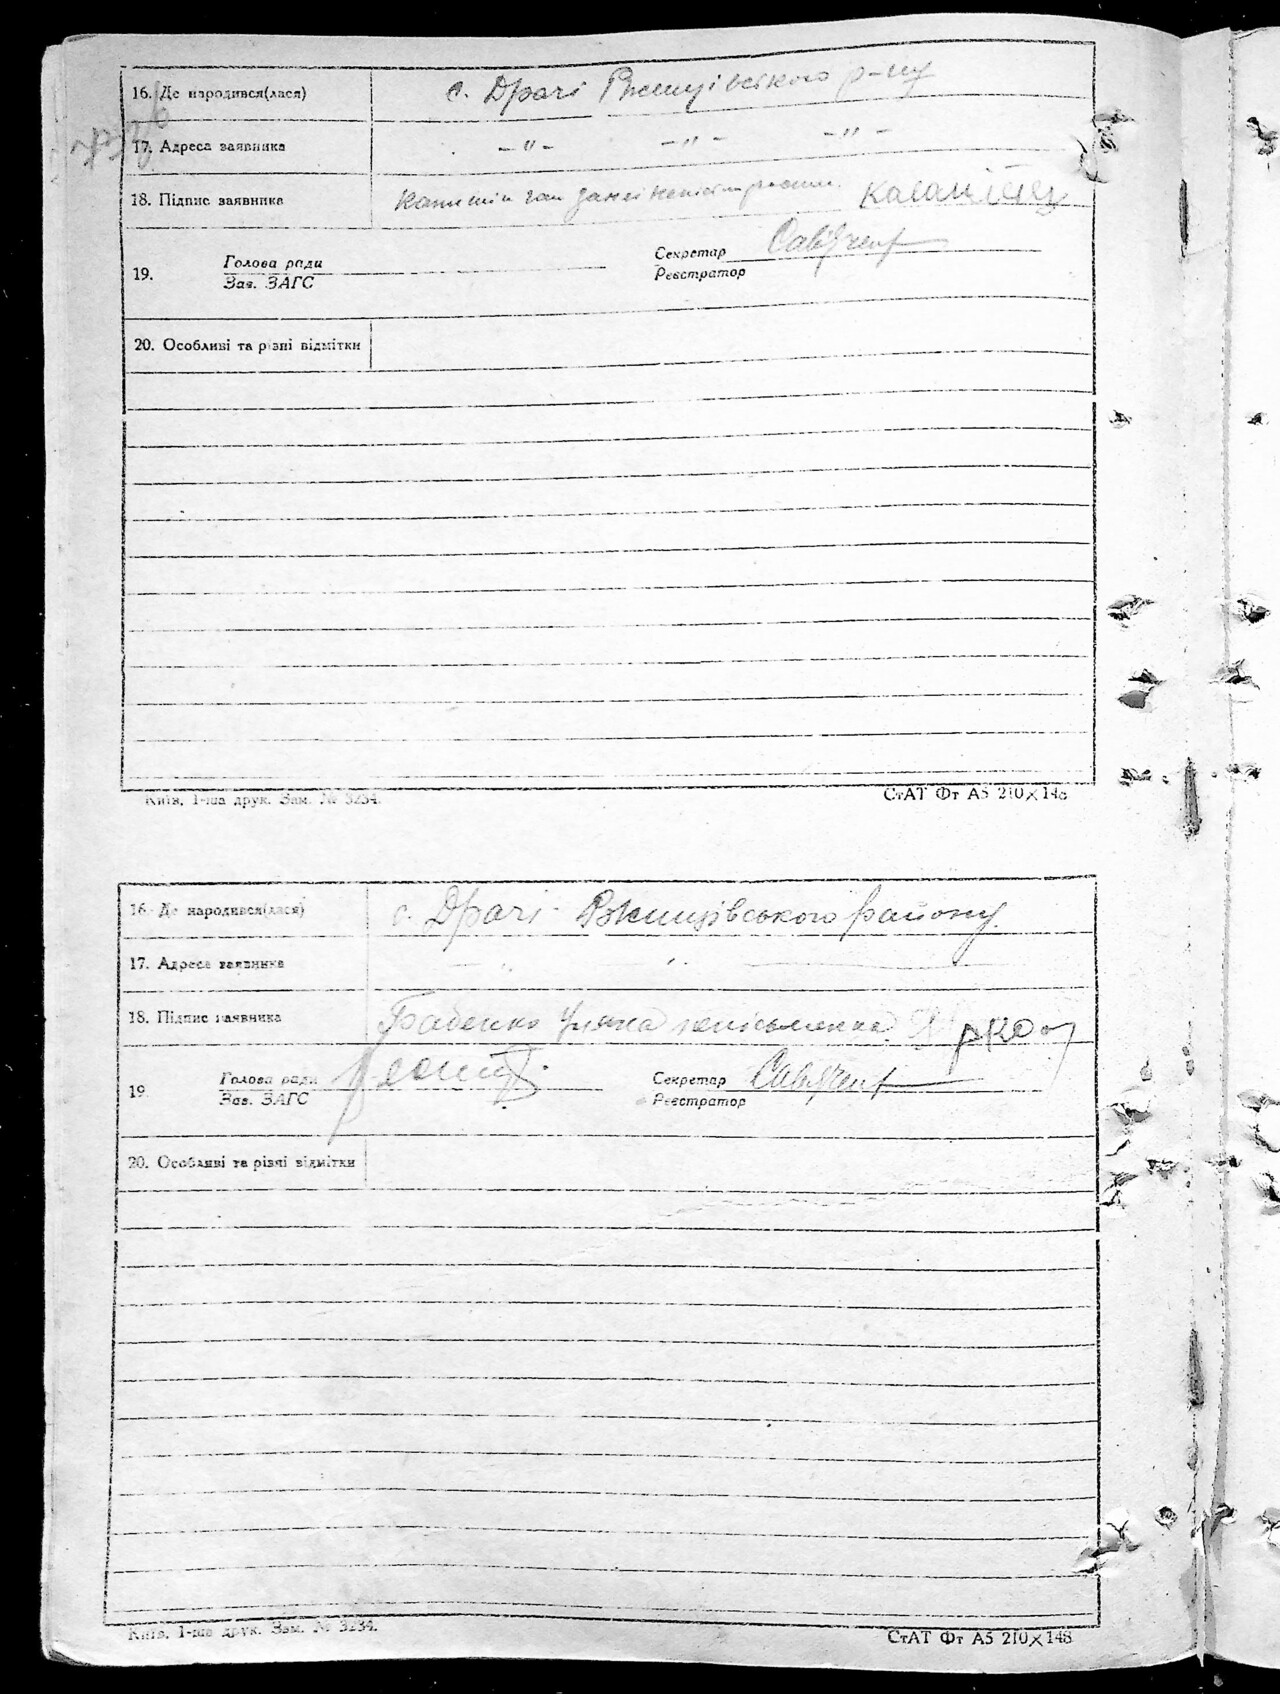 16. Де народився(лася) с. Драчі Ржищівського р-ну
17. Адреса заявника -"- -"- -"-
18. Підпис заявника
Голова ради Секретар
19. Зав. ЗАГС Реєстратор
20. Особливі та різні відмітки
Київ, 1-ша друк. Зам. № 3234. СтАТ Фт А5 210×148
16. Де народився(лася) с. Драчі Ржищівського району.
17. Адреса заявника " "
18. Підпис заявника Бабенко Уляна неписьменна
Голова ради Секретар
19. Зав. ЗАГС Реєстратор
20. Особливі та різні відмітки
Київ, 1-ша друк. Зам. № 3234. СтАТ Фт А5 210×148